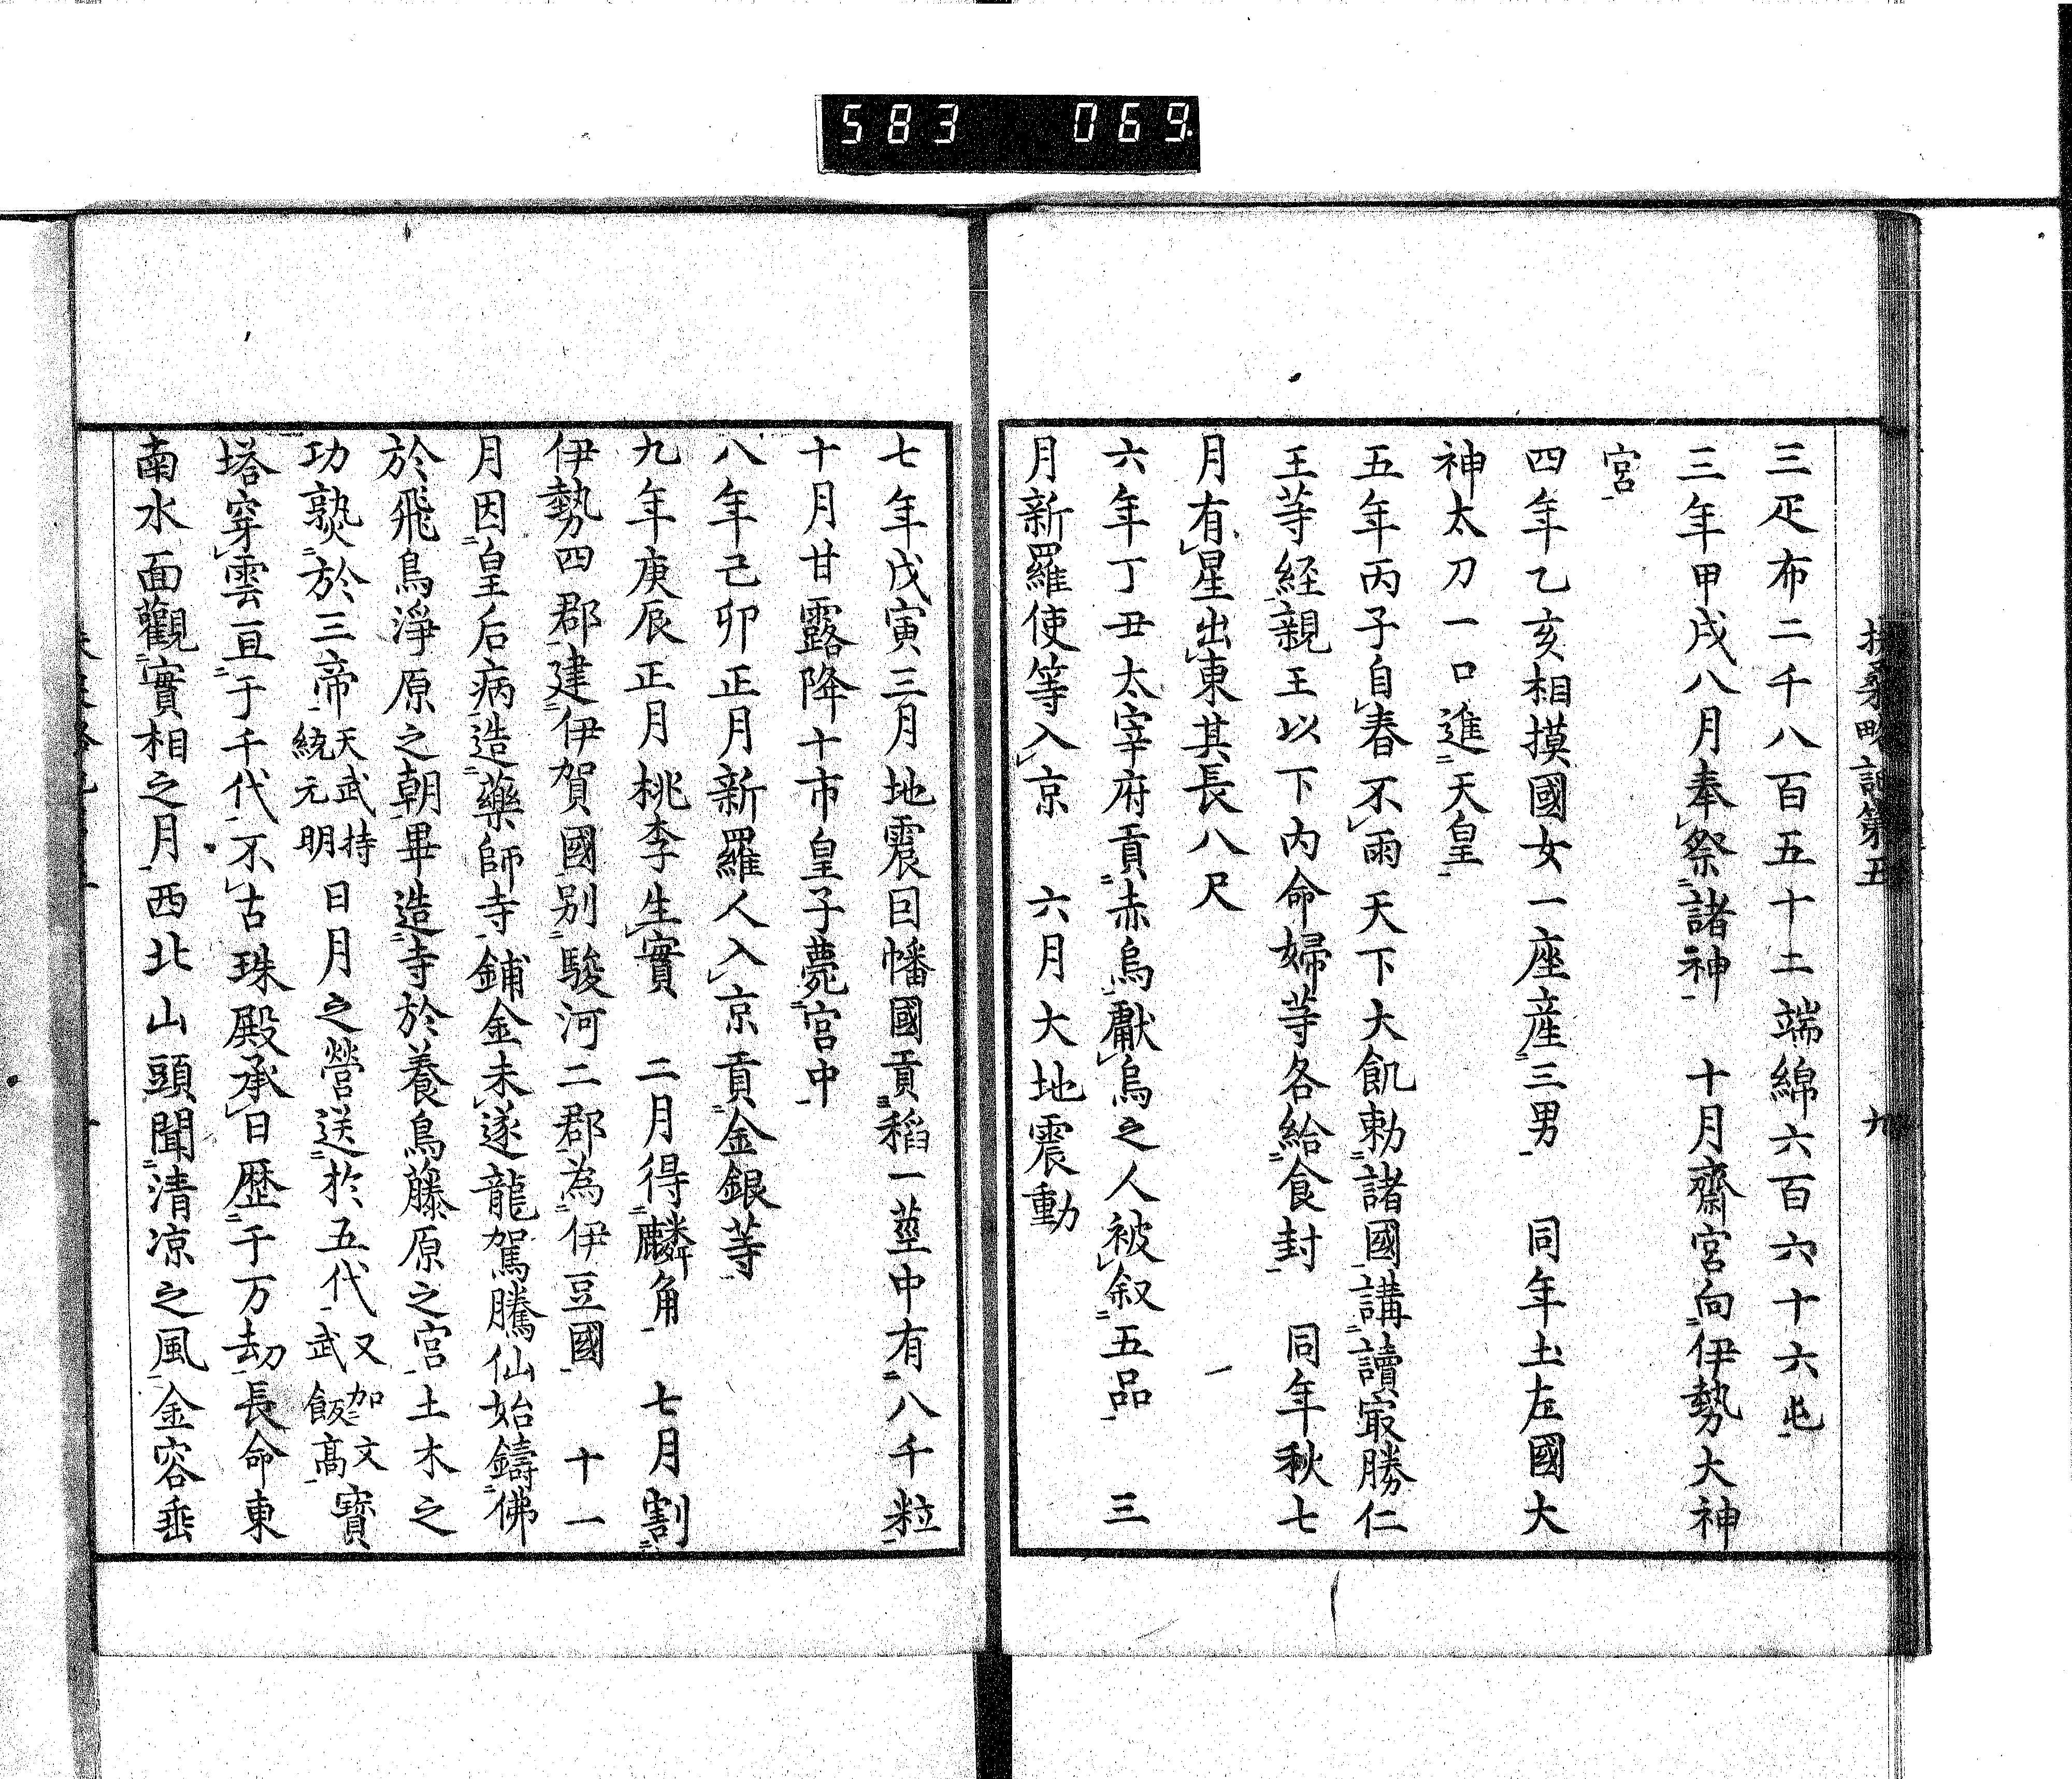 583 069
扶桑略記第五 九
三疋布二千八百五十二端綿六百六十六屯
三年甲戌八月奉祭諸神 十月齋宮向伊勢大神
宮
四年乙亥相摸國女一座産三男 同年土左國大
神太刀一口進天皇
五年丙子自春不雨天下大飢勅諸國講讀㝡勝仁
王䒭経親王以下内命婦䒭各給食封 同年秋七
月有星出東其長八尺
六年丁丑太宰府貢赤烏獻烏之人被叙五品 三
月新羅使等入京 六月大地震動
七年戊寅三月地震囙幡國貢稻一莖中有八千粒
十月甘露降十市皇子薨宮中
八年己卯正月新羅人入京貢金銀䒭
九年庚辰正月桃李生實 二月得麟角 七月割
伊勢四郡建伊賀國别駿河二郡為伊豆國 十一
月因皇后病造藥師寺鋪金未遂龍駕騰仙始鑄佛
於飛鳥淨原之朝畢造寺於養鳥藤原之宮土木之
功熟於三帝天武持統元明日月之營送於五代又加文武飯高寳
塔穿雲亘于千代不古珠殿承日歷于万劫長命東
南水面觀實相之月西北山頭聞清凉之風金容垂